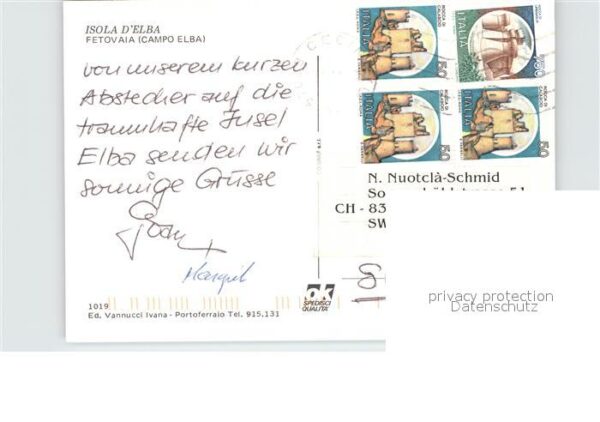 ISOLA D'ELBA
FETOVAIA (CAMPO ELBA)
von unserem kurzen
Abstecher auf die
traumhafte Insel
Elba senden wir
sonnige Grüsse
Margit
1019
Ed. Vannucci Ivana - Portoferraio Tel. 915.131
ok
SPEDISCI
QUALITA'
ITALIA
50
ITALIA
ITALIA
50
ITALIA
50
N. Nuotclà-Schmid
CH - 83
SW
privacy protection
Datenschutz